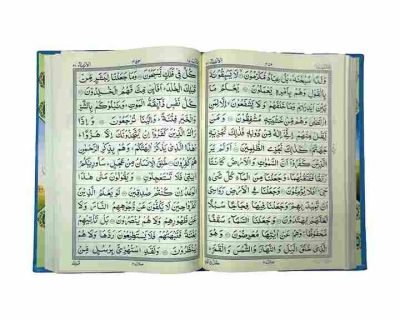 وَلَدًا سُبْحٰنَهٗ ؕ بَلْ عِبَادٌ مُّكْرَمُوْنَ ۙ لَا يَسْبِقُوْنَهٗ
بِالْقَوْلِ وَهُمْ بِاَمْرِهٖ يَعْمَلُوْنَ يَعْلَمُ مَا
بَيْنَ اَيْدِيْهِمْ وَمَا خَلْفَهُمْ وَلَا يَشْفَعُوْنَ ۙ اِلَّا لِمَنِ
ارْتَضٰى وَهُمْ مِّنْ خَشْيَتِهٖ مُشْفِقُوْنَ وَمَنْ
يَّقُلْ مِنْهُمْ اِنِّىْۤ اِلٰهٌ مِّنْ دُوْنِهٖ فَذٰلِكَ نَجْزِيْهِ
جَهَنَّمَ ؕ كَذٰلِكَ نَجْزِى الظّٰلِمِيْنَ اَوَلَمْ يَرَ
الَّذِيْنَ كَفَرُوْۤا اَنَّ السَّمٰوٰتِ وَالْاَرْضَ كَانَتَا
رَتْقًا فَفَتَقْنٰهُمَا ؕ وَجَعَلْنَا مِنَ الْمَآءِ كُلَّ شَىْءٍ
حَىٍّ ؕ اَفَلَا يُؤْمِنُوْنَ وَجَعَلْنَا فِى الْاَرْضِ رَوَاسِىَ
اَنْ تَمِيْدَ بِهِمْ وَجَعَلْنَا فِيْهَا فِجَاجًا سُبُلًا
لَّعَلَّهُمْ يَهْتَدُوْنَ وَجَعَلْنَا السَّمَآءَ سَقْفًا
مَّحْفُوْظًا ۖ وَّهُمْ عَنْ اٰيٰتِهَا مُعْرِضُوْنَ وَهُوَ
الَّذِىْ خَلَقَ الَّيْلَ وَالنَّهَارَ وَالشَّمْسَ وَالْقَمَرَ
كُلٌّ فِىْ فَلَكٍ يَّسْبَحُوْنَ وَمَا جَعَلْنَا لِبَشَرٍ مِّنْ
قَبْلِكَ الْخُلْدَ ؕ اَفَا۠ئِنْ مِّتَّ فَهُمُ الْخٰلِدُوْنَ
كُلُّ نَفْسٍ ذَآئِقَةُ الْمَوْتِ ؕ وَنَبْلُوْكُمْ بِالشَّرِّ
وَالْخَيْرِ فِتْنَةً ؕ وَاِلَيْنَا تُرْجَعُوْنَ وَاِذَا
رَاٰكَ الَّذِيْنَ كَفَرُوْۤا اِنْ يَّتَّخِذُوْنَكَ اِلَّا هُزُوًا ؕ
اَهٰذَا الَّذِىْ يَذْكُرُ اٰلِهَتَكُمْ ۚ وَهُمْ بِذِكْرِ الرَّحْمٰنِ
هُمْ كٰفِرُوْنَ خُلِقَ الْاِنْسَانُ مِنْ عَجَلٍ ؕ سَاُورِيْكُمْ
اٰيٰتِىْ فَلَا تَسْتَعْجِلُوْنِ وَيَقُوْلُوْنَ مَتٰى هٰذَا
الْوَعْدُ اِنْ كُنْتُمْ صٰدِقِيْنَ لَوْ يَعْلَمُ الَّذِيْنَ
كَفَرُوْا حِيْنَ لَا يَكُفُّوْنَ عَنْ وُّجُوْهِهِمُ النَّارَ
وَلَا عَنْ ظُهُوْرِهِمْ وَلَا هُمْ يُنْصَرُوْنَ بَلْ تَاْتِيْهِمْ
بَغْتَةً فَتَبْهَتُهُمْ فَلَا يَسْتَطِيْعُوْنَ رَدَّهَا وَلَا هُمْ
يُنْظَرُوْنَ وَلَقَدِ اسْتُهْزِئَ بِرُسُلٍ مِّنْ